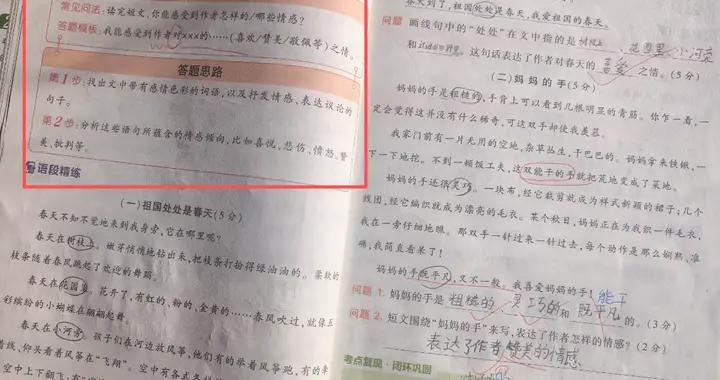 常见问法:读完短文,你能感受到作者怎样的/哪些情感?
答题模板:我能感受到作者对xxx的……(喜欢/赞美/敬佩等)之情。
答题思路
第1步:找出文中带有感情色彩的词语,以及抒发情感、表达议论的
句子。
第2步:分析这些语句所蕴含的情感倾向,比如喜悦、悲伤、愤怒、赞
美、批判等。
语段精练
(一)祖国处处是春天(5分)
春天不知不觉地来到我身旁,它在哪里呢?
春天在树枝上。嫩芽悄悄地钻出来,把枝条打扮得绿油油的。柔软的
枝条随着春风跳起了欢迎的舞蹈。
春天在花园里。花开了,有红的、粉的、金黄的……春风吹过,就像五
彩缤纷的小蝴蝶在翩翩起舞
春天在小河旁。孩子们在河边放风筝,他们有的举着风筝跑,有的牵
着线,仰头看着风筝在“飞翔”。空中有各式
空中上下翻飞,有
春天到了,祖国处处是春天,我爱祖国的春天。
问题 画线句中的“处处”在文中指的是 树枝上、花园里、小河旁
和 这句话表达了作者对春天的 喜爱 之情。(5分)
(二)妈妈的手(5分)
妈妈的手是粗糙的,手背上可以看到几根明显的青筋。你乍一看,一
定会觉得这并没有什么稀奇,可这双手却使我羡慕。
我家门前有一片无用的空地,杂草丛生,干巴巴的。妈妈拿来铁锹,一
下一下地挖。不到一顿饭工夫,这双能干的手就把荒地变成了菜地。
妈妈的手还很灵巧。一块布,经它裁剪就成为样式新颖的裙子;几个
线团,经它编织就成为漂亮的毛衣。某个秋日,妈妈正在为我织一件毛衣,
我在一旁仔细地瞧。那双手一针过来一针过去,每个动作是那么娴熟、准
确,我简直看呆了!
妈妈的手既平凡,又不一般。我喜爱妈妈的手!
能干
问题 1. 妈妈的手是 粗糙的 、灵巧的 和 既平凡 的。(3分)
问题 2. 短文围绕“妈妈的手”来写,表达了作者怎样的情感?(2分)
表达了作者赞美的情感
考点复现·闭环巩固